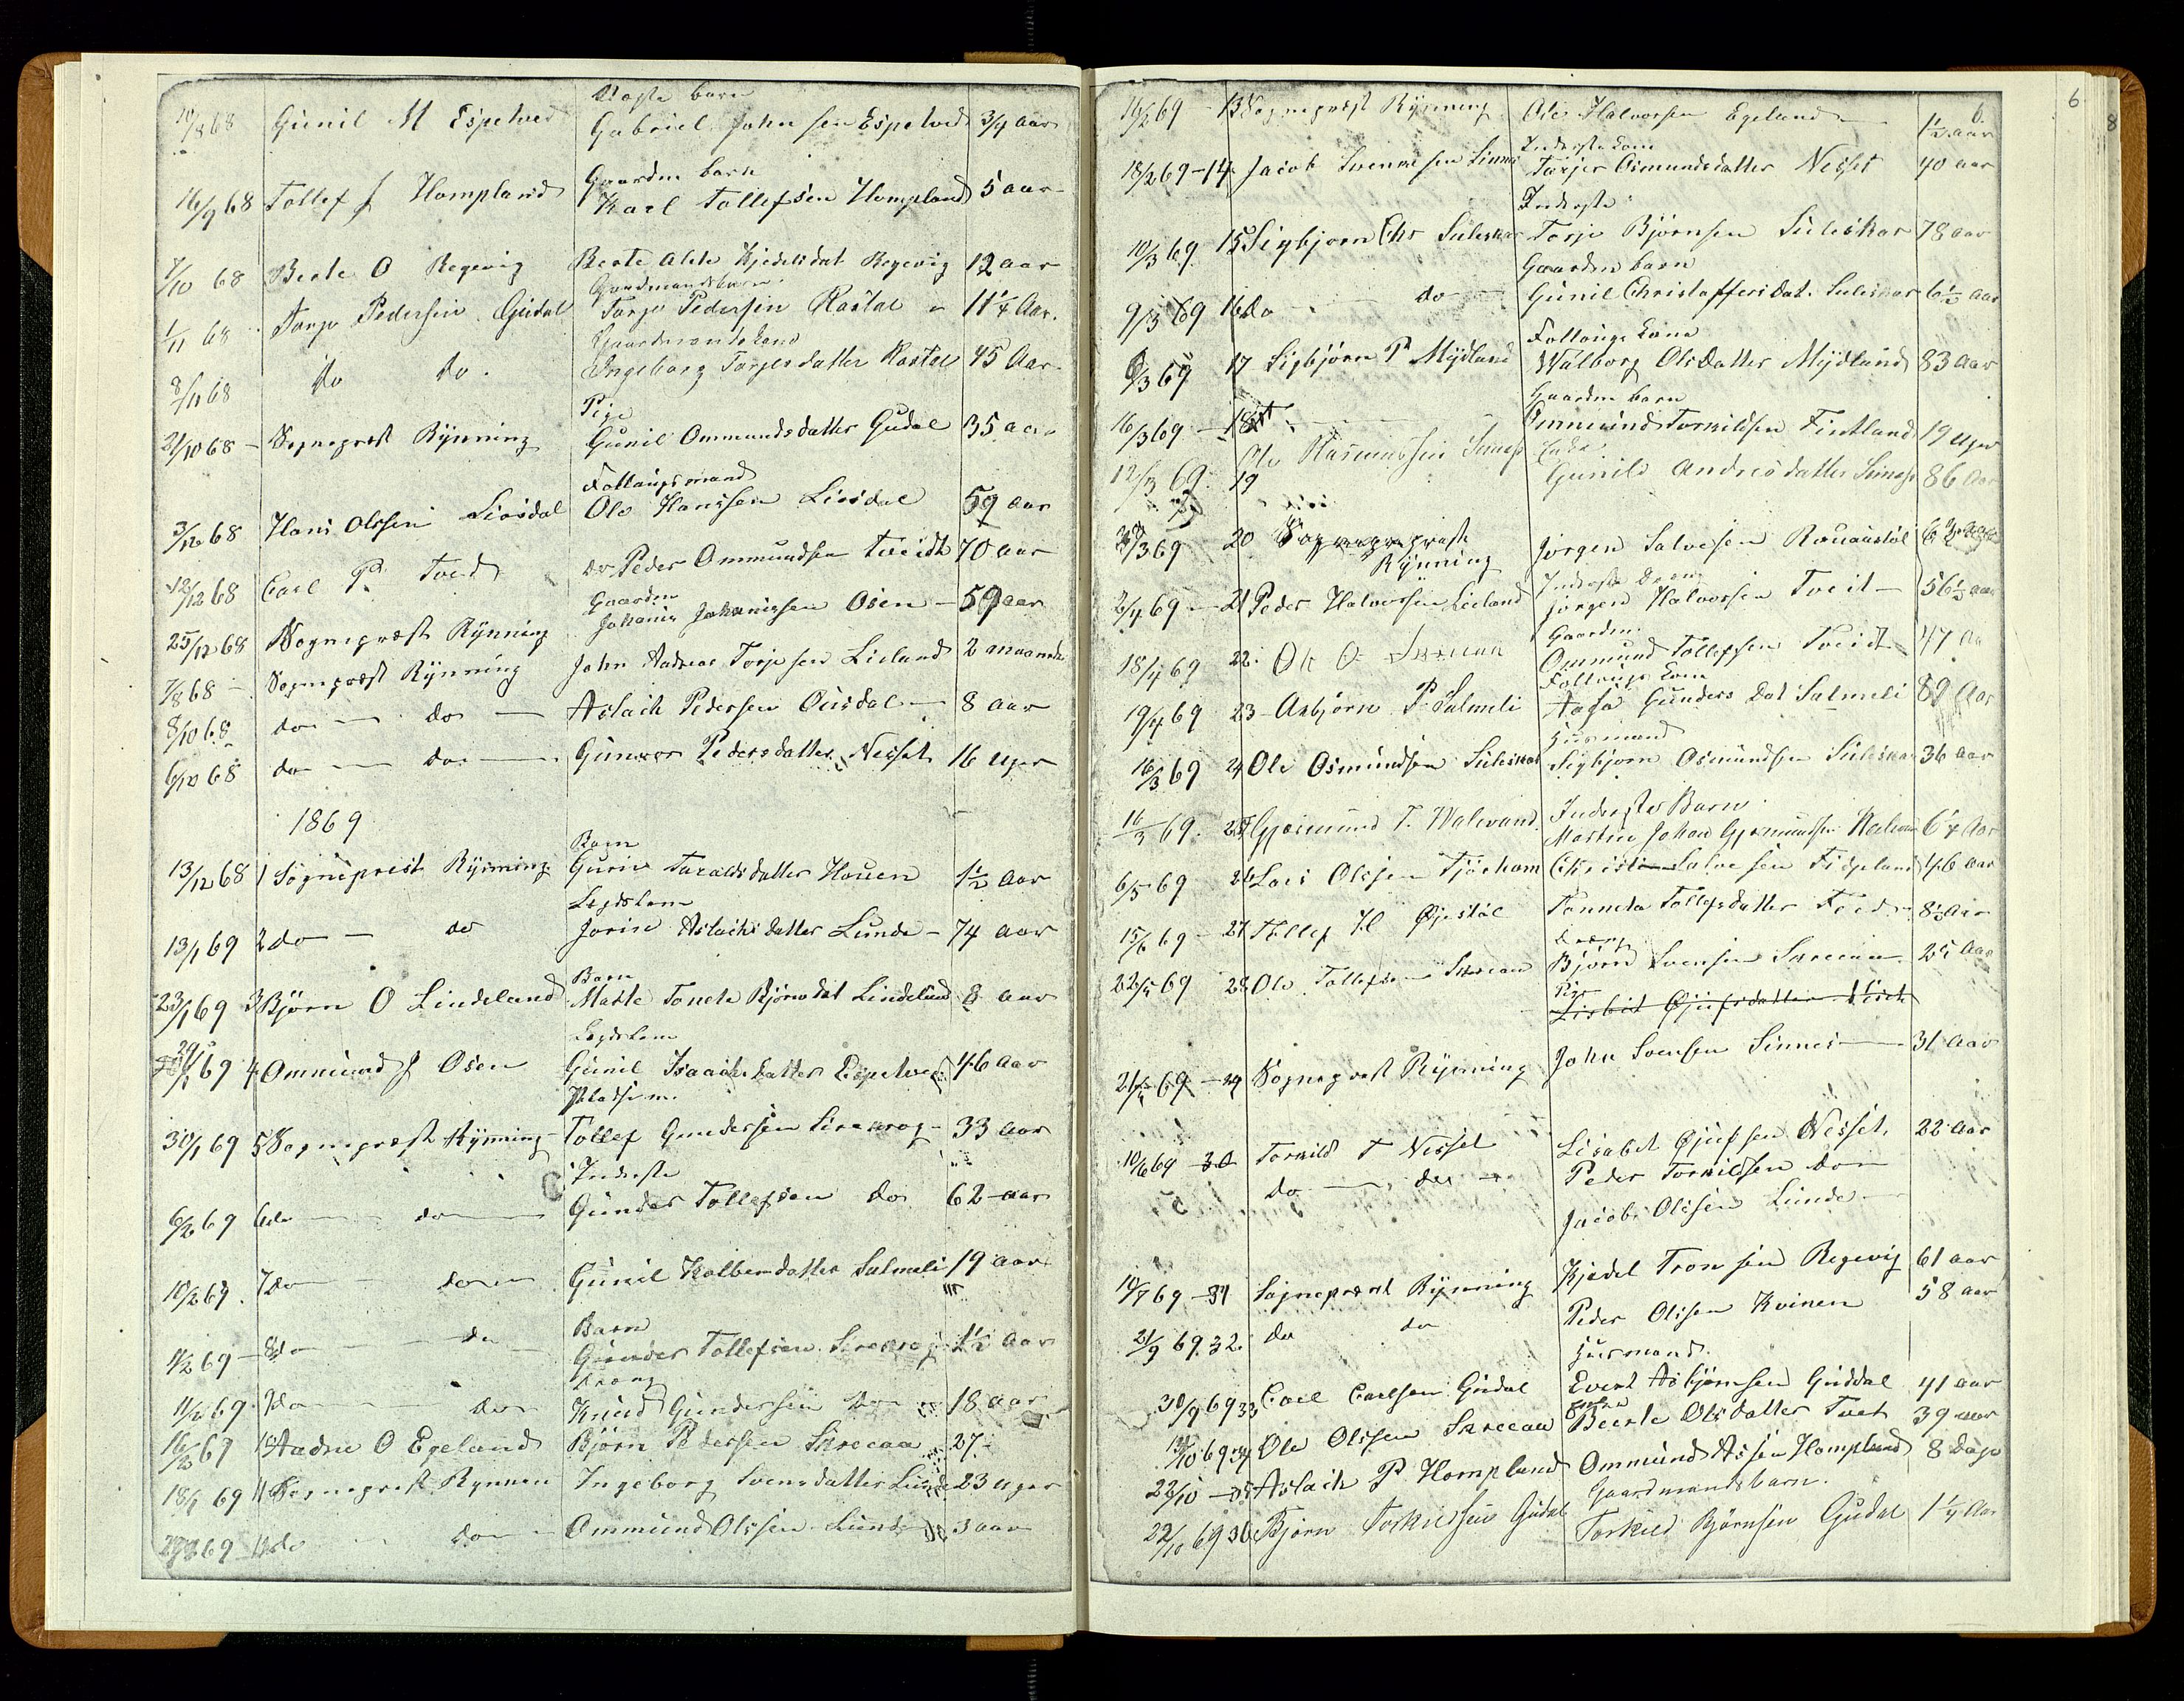 Gunil M Espetved
Gabriel Johnsen Espetved 3/4 aar
Gaardm barn
16/9 68 Tollef J Hompland Karl Tollefsen Hompland 5 aar
7/10 68 Berte O Regevig Berte Alete Kjedelsdat Regevig 12 aar
Gardmandsbarn
1/11 68 Tarjo Pedersen Gudal Tarjo Pedersen Rostøl 11 1/4 Aar.
Gaardmandskone
8/11 68 do do. Ingeborg Tarjersdatter Rostøl 45 Aar.
Pige
21/10 68 - Sognepræst Rynning Gunil Ommundsdatter Gudal 35 aar
Follaugsmand
3/12 68 Hans Olssen Liosdal Ole Hanssen Liosdal 59 aar
12/12 68 Carl P. Tved do Peder Ommundsen Tveidt 70 aar
Gaardm
25/12 68 Sognepræst Rynning Johanis Johanissen Osen - 59 aar
7/8 68 - Sognepræst Rynning John Andreas Torjesen Lieland 2 maaneder
8/10 68 do - do - Aslach Pedersen Ousdal - 8 aar
6/12 68 do - do - Gunvor Pedersdatter Nesset 16 uger
1869
Barn
13/12 68 1 Sogneprest Rynning Guri Taraldsdatter Houen 1 1/2 aar
Legdslem
13/1 69 2 do - do Jorin Aslachsdatter Lunde - 74 aar
Barn
23/1 69 3 Bjørn O Lindeland Marte Tonete Bjørnsdat Lindeland 8 aar
Legdslem
29/1 69 4 Ommund J Osen Gunil Isaachsdatter Espetved 46 aar
Pladsem.
30/1 69 5 Sognepræst Rynning - Tollef Gundersen Sirekrog - 33 aar
Inderste
6/2 69 6 do - do - Gunder Tollefsen do 62 aar
10/2 69. 7 do - do - Gunil Kolbensdatter Salmeli 19 aar
Barn
4/2 69 - 8 do - do Gunder Tollefsen Sirekrog 1 1/2 aar
Dreng
11/2 69. 9 do - do Knud Gundersen do 18 aar
16/2 69 10 Aadne O Egeland Bjørn Pedersen Skrecaa 27 -
18/1 69 11 Sognepræst Rynnen Ingeborg Svensdatter Lunde 23 uger
69 12 do - do - Ommund Olssen Lunde 3 aar
6
8
6.
16/2 69 - 13 Sognepræst Rynning Ole Halvorsen Egeland 1 1/2 aar
Inderstekone
18/2 69 - 14 Jacob Svennesen Sinnes Tarjer Osmundsdatter Nesset 40 aar
Inderste
10/3 69. 15 Sigbjørn Chr Suleskar Torje Bjørnsen Suleskar 78 aar
Gaardm barn
9/3 69 16 do - do - Gunil Christoffersdat. Suleskar 6 1/2 aar
Follaugs kone
6/3 69 17 Sigbjørn P Mydland Walborg Olsdatter Mydland 83 aar
Gaardm barn
16/3 69 - 18 Ommund Torkildsen Fintland 19 uger
Enke
12/3 69. 19 Ole Rasmussen Gunild Andreasdatter 86 aar
3 69 20 Sognepræst Rynning Jørgen Salvesen
Inderste Dreng
2/4 69 - 21 Peder Halvorsen Lieland Jørgen Halvorsen Tveit - 56 1/2 aar
Gaardm.
18/4 69 22. Ole O Skrecaa Ommund Tollefsen Tveidt 47 aa
Follaugs kone
19/4 69 23 - Asbjørn P. Salmeli Aasa Gundersdat Salmeli 89 aar
Husmand
16/3 69 24 Ole Osmundsen Suleskar Sigbjørn Osmundsen Suleskar 36 aar
Inderstes Barn
16/3 69. 25 Gjermund T. Walevand Martin Johan Gjermundsen 6 1/4 aar
6/5 69 26 Lars Olssen Tjørhom Christi Salvesen Fidjeland 46 aar
15/6 69 - 27 Tollef Øjestøl Tonneta Tollefsdatter 8 1/2 aar
Dreng
22/5 69 28 Ole Tollefsen Skrecaa Bjørn Svensen Skrecaa 25 aar
Pige
Lisbet Øjufsdatter
21/4 69 - 29 Sognepræst Rynning John Svensen Sinnes - 31 aar
10/6 69 - 30 Torkild T Nesset Lisabet Øjufsen Nesset, 22 aar
do - do - Peder Torkildsen do
Jacob Olssen Lunde -
10/7 69 - 31 Sognepræst Rynning Kjedel Tronsen Regevig 61 aar
21/9 69. 32. do do Peder Olssen Kvinen 58 aar
Husmand.
30/9 69 33 Carl Carlsen Gudal Evert Asbjørnsen Guddal 41 aar
Kone
10 69 34 Ole Olssen Skrecaa Beerte Olsdatter Tvet 39 aar
22/10 - 35 Aslach P Hompland Ommund Assen Hompland 8 dage
Gaardmandsbarn.
22/10 69 36 Bjørn Torkildsen Gudal Torkild Bjørnsen Gudal 1 1/4 Aar